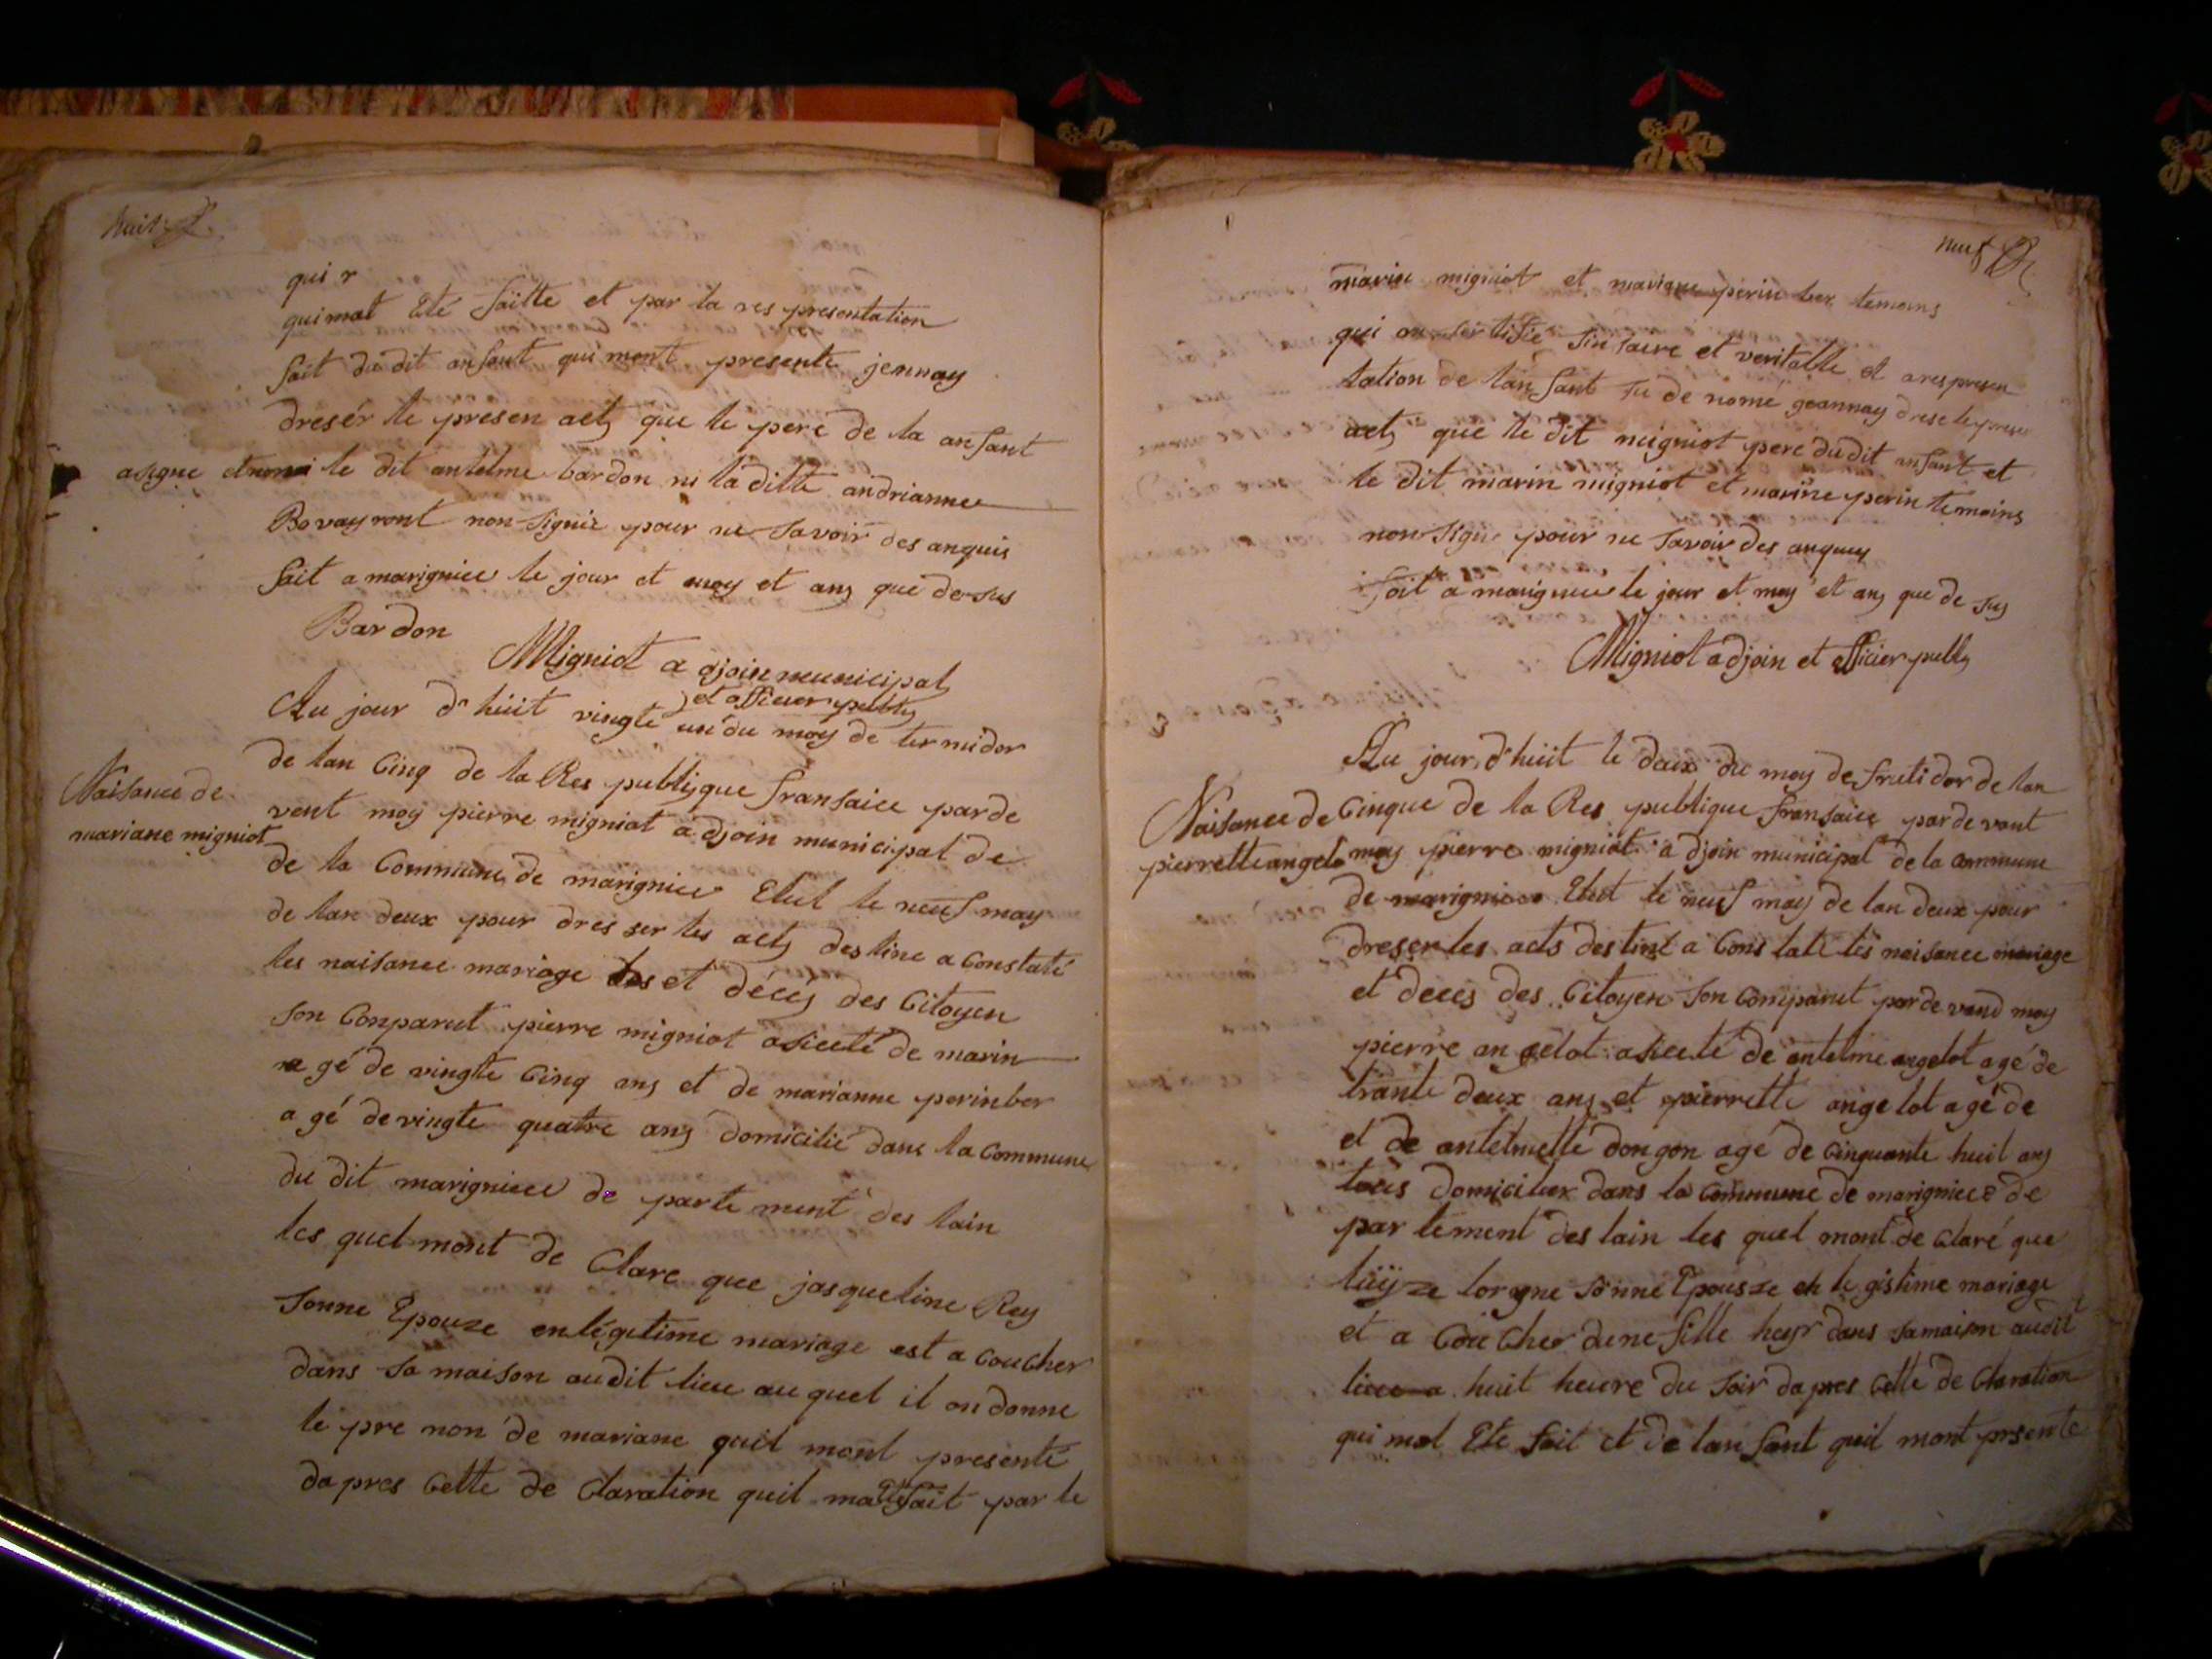 huit
qui r
quimat Eté faitte et par la respresentation
fait du dit anfant qui mont presente jennay
dresér le presen acts que le peré de la anfant
asigne et nonni le dit antelme bardon ni la ditte andrianne
Bovayront non signie pour ne savoir des anquis
fait a marigniee le jour et moy et ans que desus
Bardon
Migniot a djoin municipal
et officier publiq
Au jour d'huit vingte un du moy de termidor
de lan Cinq de la Res publiyque fransaice parde
Naisance de
mariane migniot
vent moy pierre migniot a djoin municipal de
de la Commune de marigniee Elut le neuf may
de lan deux pour dres ser les acts destine a Constaté
les naisance mariage et décés des Citoyen
son Conparut pierre migniot asiceté de marin
a gé de vingte Cinq ans et de marianne perinber
a gé de vingte quatre ans domicilié dans la Commune
du dit marigniee de parte ment des lain
les quel mont de Clare que jasqueline Rey
sonne Epouze en légitime mariage est a Coucher
dans sa maison au dit lieu au quel il on donne
le pre non de mariane quil mont presenté
da pres Cette de Claration quil mat Eté fait par le
neuf
marin migniot et mariane perin ber temoins
qui on sertifié sin saire et veritable et a respresen
tation de lan fant su de nomé jeannay drese le presen
acts que le dit migniot pere du dit anfant et
le dit marin migniot et marine perin temoins
non signe pour ne savoir des anquis
fait a marigniee le jour et moy et ans que de sus
Migniot adjoin et officier publiq
Au jour d'huit le deux du moy de frutidor de lan
Naisance de
pierrette angelo
Cinque de la Res publique fransaice parde vant
moy pierre migniot a djoin municipal de la Commune
de marigniee Elut le neuf may de lan deux pour
dreser les acts destiné a Cons taté les naisance mariage
et deces des Citoyen son Comparut par de vand moy
pierre angelot asiceté de antelme angelot agé de
trante deux ans et pierrette angelot agé de
et de antelmette dongon agé de Cinquante huit ans
tous domicilier dans la Commune de marigniee de
par tement des lain les quel mont de Claré que
lüÿze lorgne sonne Epousze en le gistime mariage
et a Cou Cher dune fille heyr dans samaison audit
lieu a huit heure du soir da pres Cette de Claration
qui mat Eté fait et de lan fant quil mont prsente